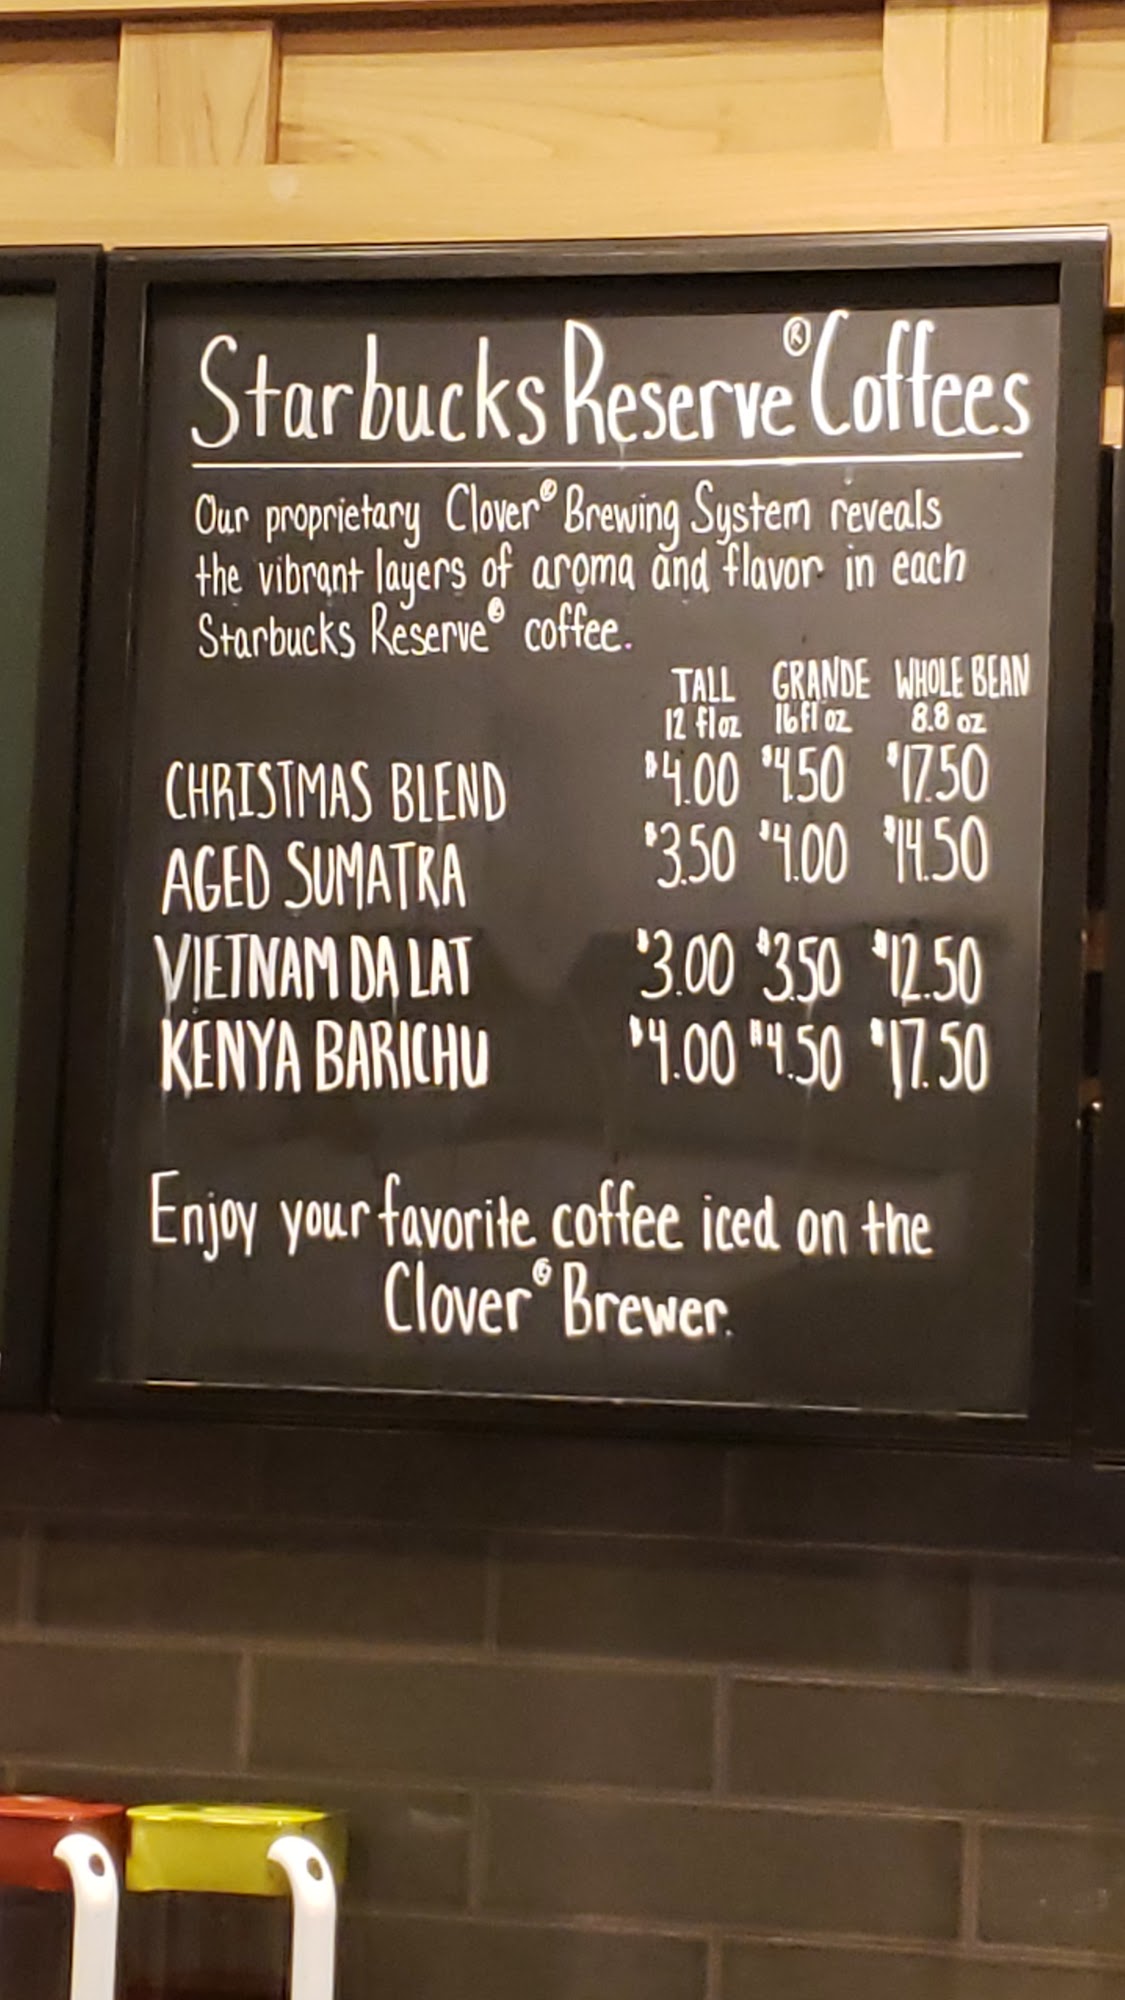 Starbucks Reserve® Coffees
Our proprietary Clover® Brewing System reveals
the vibrant layers of aroma and flavor in each
Starbucks Reserve® coffee.
TALL GRANDE WHOLE BEAN
12 fl oz 16 fl oz 8.8 oz
CHRISTMAS BLEND $4.00 $4.50 $17.50
AGED SUMATRA $3.50 $4.00 $14.50
VIETNAM DA LAT $3.00 $3.50 $12.50
KENYA BARICHU $4.00 $4.50 $17.50
Enjoy your favorite coffee iced on the
Clover® Brewer.